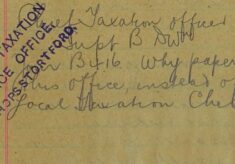 TAXATION
OFFICE,
BISHOPS STORTFORD.
Chief Taxation officer
Supt B Div
B-16 Why paper
this office, instead o
Local Taxation Chel